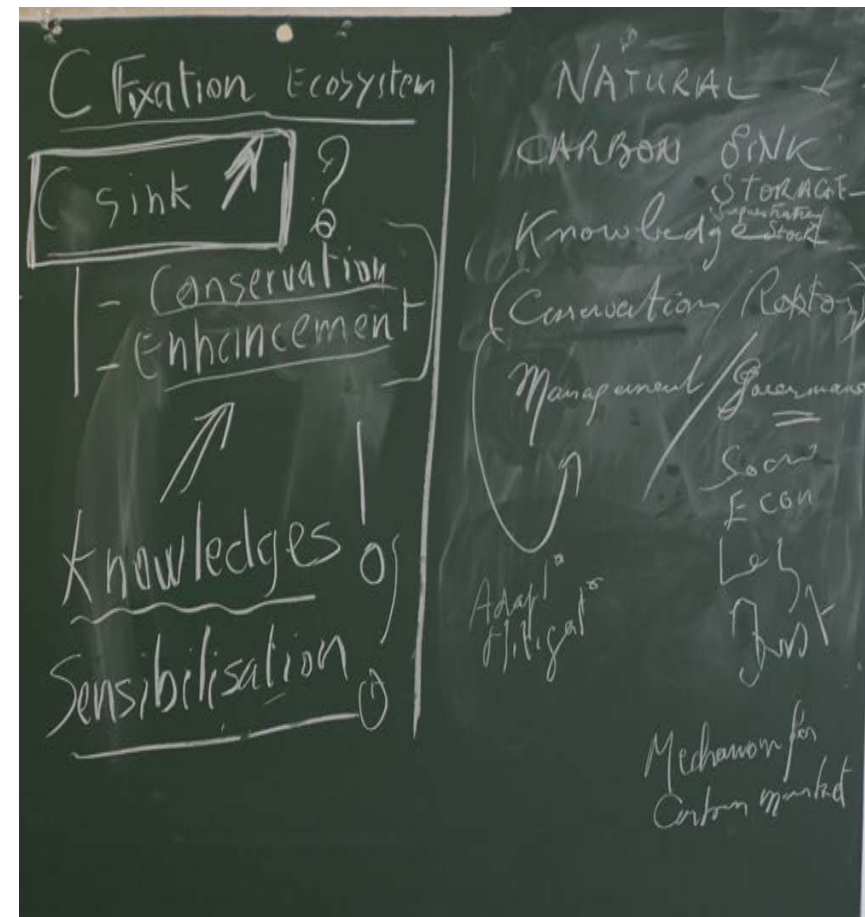 C Fixation Ecosystem
C sink ?
- Conservation
- Enhancement
Knowledges !
Sensibilisation
NATURAL
CARBON SINK
STORAGE
Sequestration
Knowledge Stock
(Conservation / Restor)
Management / Governance
Socio
ECON
Leg
Adapt°
Mitigat°
Mechanism for
Carbon market